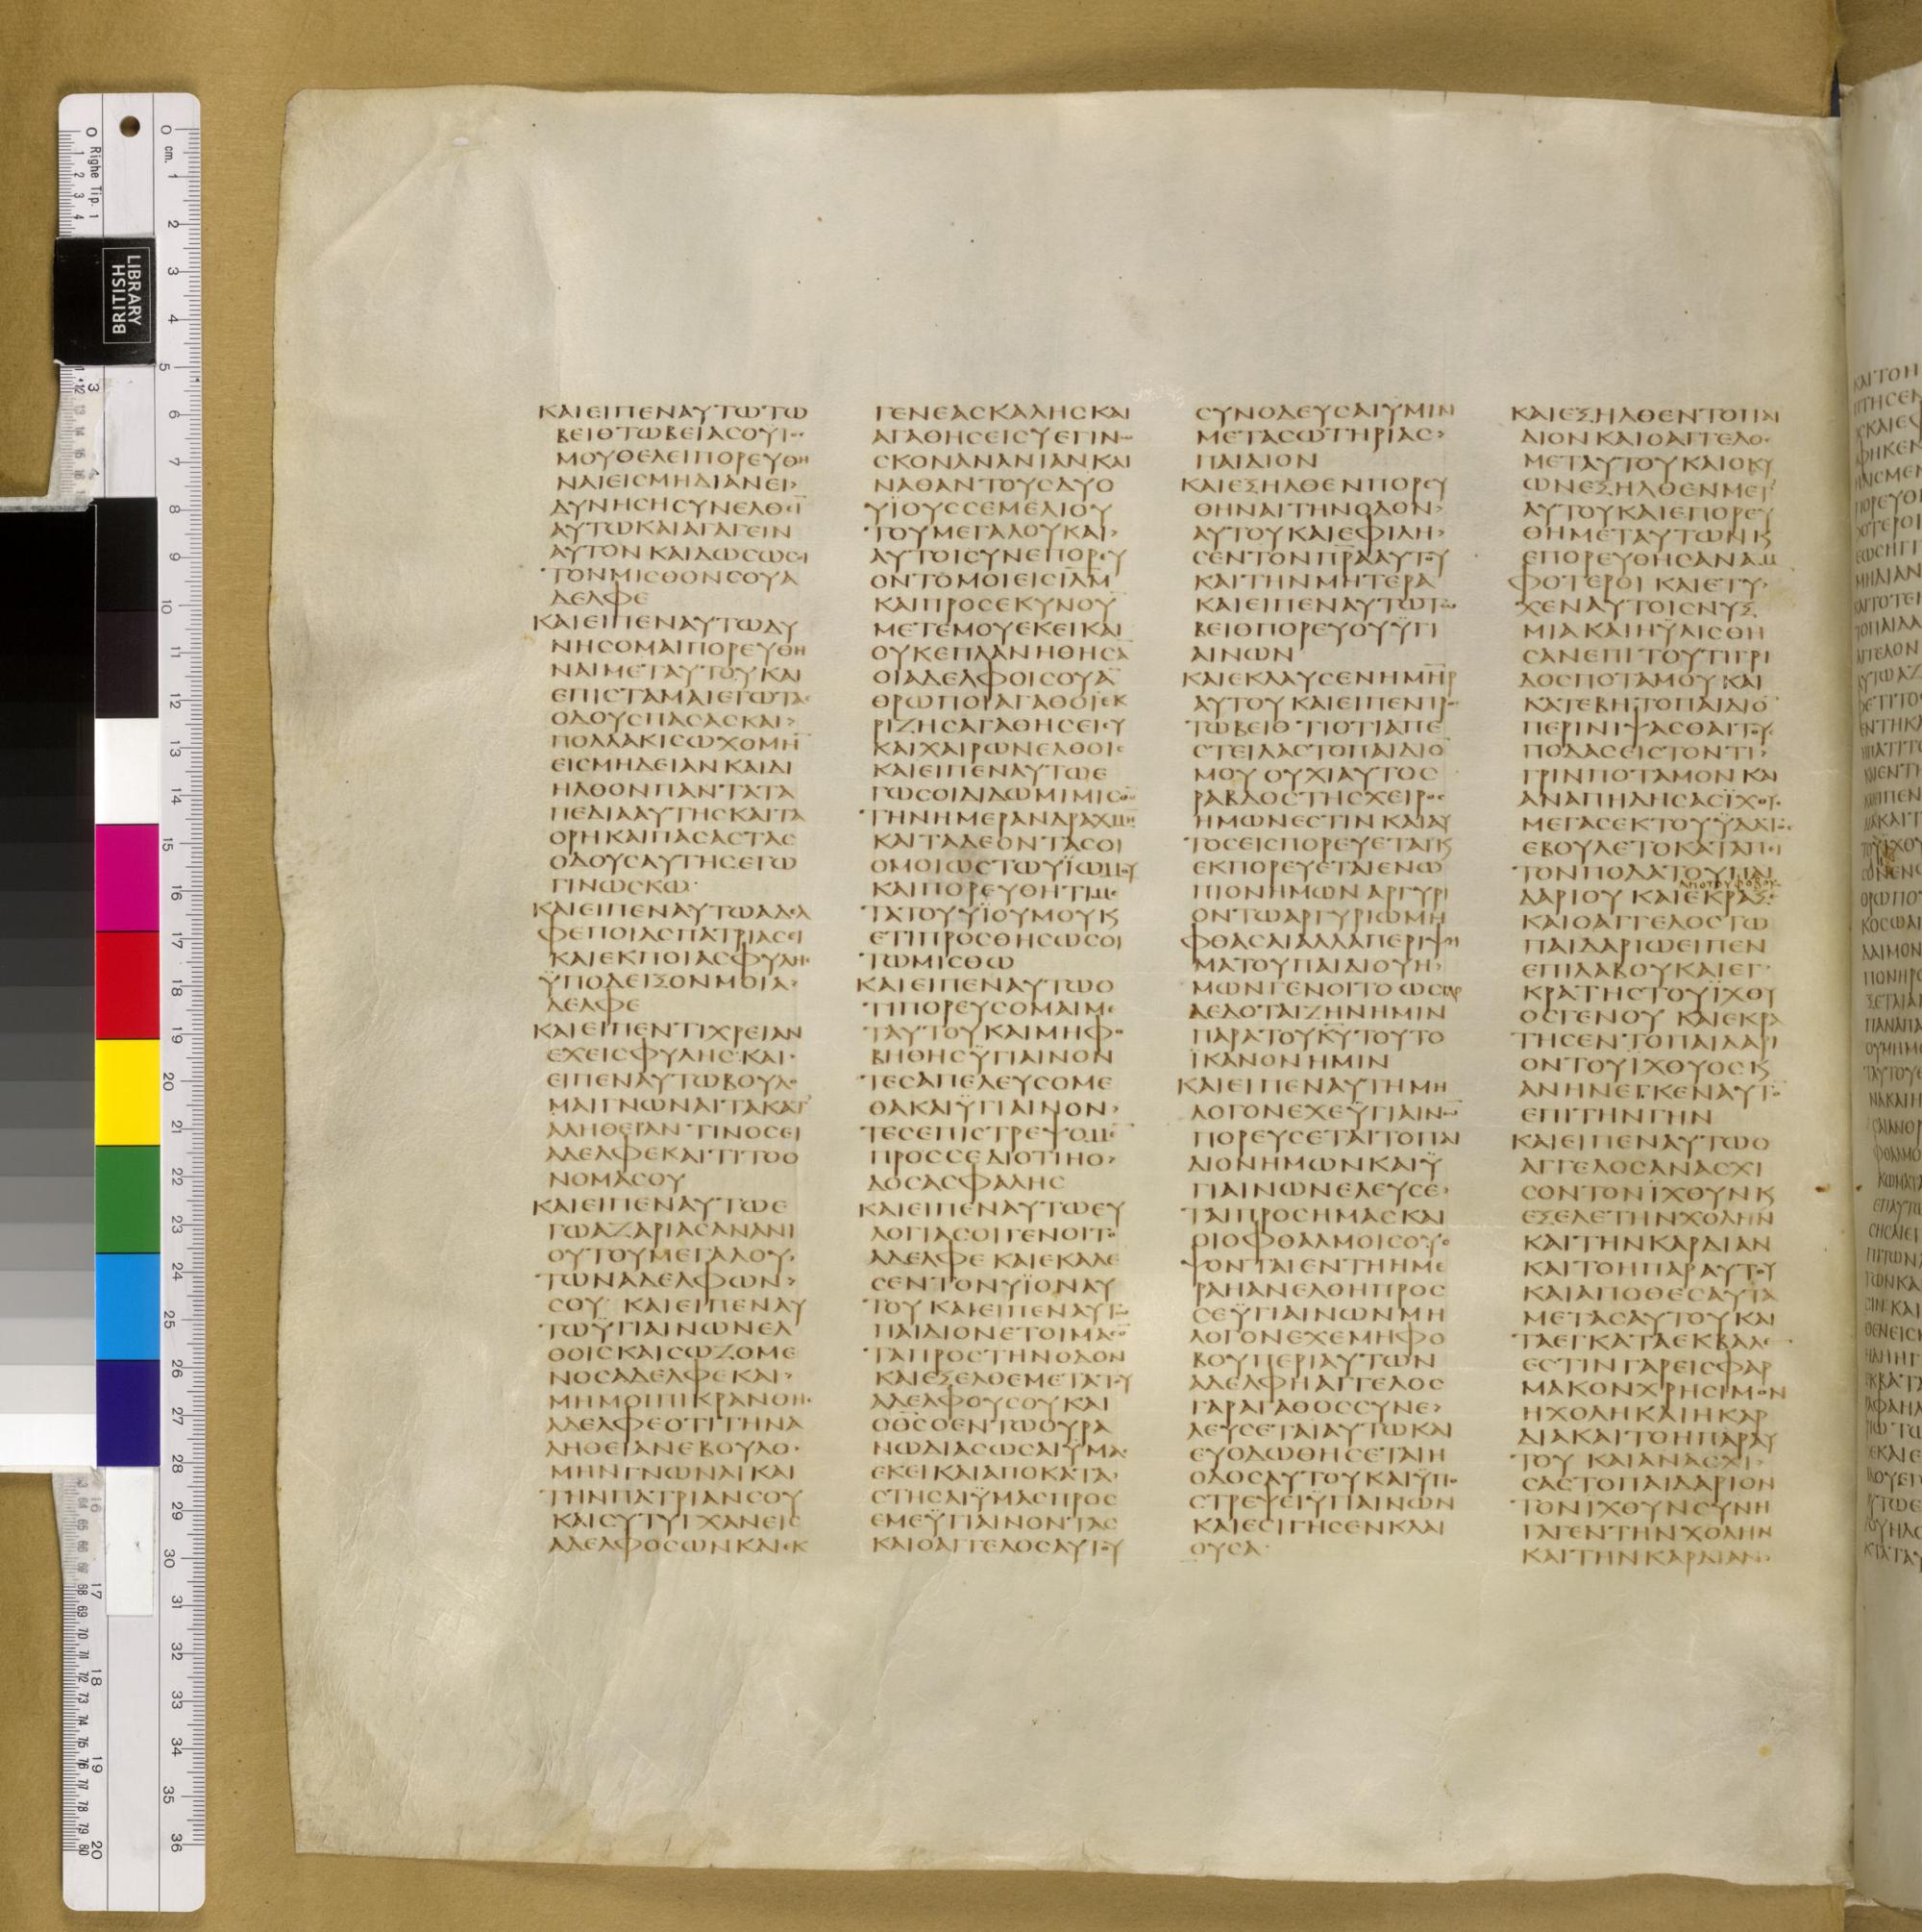 BRITISH
LIBRARY
Righe Tip. 1
cm.
ΚΑΙΕΙΠΕΝΑΥΤΩΤΩ
ΒΕΙΘΤΩΒΕΙΑϹΟΥΙΟϹ
ΜΟΥΘΕΛΕΙΠΟΡΕΥΘΗ
ΝΑΙΕΙϹΜΗΔΙΑΝΕΙ›
ΔΥΝΗϹΗϹΥΝΕΛΘΙ
ΑΥΤΩΚΑΙΑΓΑΓΕΙΝ
ΑΥΤΟΝΚΑΙΔΩϹΩϹΟΙ
ΤΟΝΜΙϹΘΟΝϹΟΥΑ
ΔΕΛΦΕ
ΚΑΙΕΙΠΕΝΑΥΤΩΔΥ
ΝΗϹΟΜΑΙΠΟΡΕΥΘΗ
ΝΑΙΜΕΤΑΥΤΟΥΚΑΙ
ΕΠΙϹΤΑΜΑΙΕΓΩΤΑϹ
ΟΔΟΥϹΠΑϹΑϹΚΑΙ›
ΠΟΛΛΑΚΙϹΩΧΟΜΗ
ΕΙϹΜΗΔΕΙΑΝΚΑΙΔΙ
ΗΛΘΟΝΠΑΝΤΑΤΑ
ΠΕΔΙΑΑΥΤΗϹΚΑΙΤΑ
ΟΡΗΚΑΙΠΑϹΑϹΤΑϹ
ΟΔΟΥϹΑΥΤΗϹΕΓΩ
ΓΙΝΩϹΚΩ·
ΚΑΙΕΙΠΕΝΑΥΤΩΑΔΕΛ
ΦΕΠΟΙΑϹΠΑΤΡΙΑϹΕΙ
ΚΑΙΕΚΠΟΙΑϹΦΥΛΗϹ
ΫΠΟΔΕΙΞΟΝΜΟΙΑ›
ΔΕΛΦΕ
ΚΑΙΕΙΠΕΝΤΙΧΡΕΙΑΝ
ΕΧΕΙϹΦΥΛΗϹ·ΚΑΙ·
ΕΙΠΕΝΑΥΤΩΒΟΥΛΟ
ΜΑΙΓΝΩΝΑΙΤΑΚΑΤ
ΑΛΗΘΕΙΑΝΤΙΝΟϹΕΙ
ΑΔΕΛΦΕΚΑΙΤΙΤΟΟ
ΝΟΜΑϹΟΥ
ΚΑΙΕΙΠΕΝΑΥΤΩΕ
ΓΩΑΖΑΡΙΑϹΑΝΑΝΙ
ΟΥΤΟΥΜΕΓΑΛΟΥ·
ΤΩΝΑΔΕΛΦΩΝ›
ϹΟΥ· ΚΑΙΕΙΠΕΝΑΥ
ΤΩΫΓΙΑΙΝΩΝΕΛ
ΘΟΙϹΚΑΙϹΩΖΟΜΕ
ΝΟϹΑΔΕΛΦΕΚΑΙ›
ΜΗΜΟΙΠΙΚΡΑΝΘΗϹ
ΑΔΕΛΦΕΟΤΙΤΗΝΑ
ΛΗΘΕΙΑΝΕΒΟΥΛΟ·
ΜΗΝΓΝΩΝΑΙΚΑΙ
ΤΗΝΠΑΤΡΙΑΝϹΟΥ
ΚΑΙϹΥΤΥΓΧΑΝΕΙϹ
ΑΔΕΛΦΟϹΩΝΚΑΙΕΚ
ΓΕΝΕΑϹΚΑΛΗϹΚΑΙ
ΑΓΑΘΗϹΕΙϹΥΕΓΙΝΩ
ϹΚΟΝΑΝΑΝΙΑΝΚΑΙ
ΝΑΘΑΝΤΟΥϹΔΥΟ
ΫΙΟΥϹϹΕΜΕΛΙΟΥ
ΤΟΥΜΕΓΑΛΟΥΚΑΙ›
ΑΥΤΟΙϹΥΝΕΠΟΡΕΥ
ΟΝΤΟΜΟΙΕΙϹΙΛΗΜ
ΚΑΙΠΡΟϹΕΚΥΝΟΥ
ΜΕΤΕΜΟΥΕΚΕΙΚΑΙ
ΟΥΚΕΠΛΑΝΗΘΗϹΑ
ΟΙΑΔΕΛΦΟΙϹΟΥΑ
ΘΡΩΠΟΙΑΓΑΘΟΙΕΚ
ΡΙΖΗϹΑΓΑΘΗϹΕΙϹΥ
ΚΑΙΧΑΙΡΩΝΕΛΘΟΙϹ
ΚΑΙΕΙΠΕΝΑΥΤΩΕ
ΓΩϹΟΙΔΙΔΩΜΙΜΙϹΘΟ
ΤΗΝΗΜΕΡΑΝΔΡΑΧΜΗ
ΚΑΙΤΑΔΕΟΝΤΑϹΟΙ
ΟΜΟΙΩϹΤΩΥΪΩΜΟΥ
ΚΑΙΠΟΡΕΥΘΗΤΙΜΕ
ΤΑΤΟΥΥΪΟΥΜΟΥΚΑΙ
ΕΤΙΠΡΟϹΘΗϹΩϹΟΙ
ΤΩΜΙϹΘΩ
ΚΑΙΕΙΠΕΝΑΥΤΩΟ
ΤΙΠΟΡΕΥϹΟΜΑΙΜΕ
ΤΑΥΤΟΥΚΑΙΜΗΦΟ
ΒΗΘΗϹΫΓΙΑΙΝΟΝ
ΤΕϹΑΠΕΛΕΥϹΟΜΕ
ΘΑΚΑΙΫΓΙΑΙΝΟΝ›
ΤΕϹΕΠΙϹΤΡΕΨΟΜΕ
ΠΡΟϹϹΕΔΙΟΤΙΗΟ›
ΔΟϹΑϹΦΑΛΗϹ
ΚΑΙΕΙΠΕΝΑΥΤΩΕΥ
ΛΟΓΙΑϹΟΙΓΕΝΟΙΤΟ
ΑΔΕΛΦΕ ΚΑΙΕΚΑΛΕ
ϹΕΝΤΟΝΥΪΟΝΑΥ
ΤΟΥ ΚΑΙΕΙΠΕΝΑΥΤΩ
ΠΑΙΔΙΟΝΕΤΟΙΜΑϹΟ
ΤΑΠΡΟϹΤΗΝΟΔΟΝ
ΚΑΙΕΞΕΛΘΕΜΕΤΑΤΟΥ
ΑΔΕΛΦΟΥϹΟΥΚΑΙ
ΟΘϹΟΕΝΤΩΟΥΡΑ
ΝΩΔΙΑϹΩϹΑΙΫΜΑϹ
ΕΚΕΙΚΑΙΑΠΟΚΑΤΑ›
ϹΤΗϹΑΙΫΜΑϹΠΡΟϹ
ΕΜΕΫΓΙΑΙΝΟΝΤΑϹ
ΚΑΙΟΑΓΓΕΛΟϹΑΥΤΟΥ
ϹΥΝΟΔΕΥϹΑΙΫΜΙΝ
ΜΕΤΑϹΩΤΗΡΙΑϹ›
ΠΑΙΔΙΟΝ
ΚΑΙΕΞΗΛΘΕΝΠΟΡΕΥ
ΘΗΝΑΙΤΗΝΟΔΟΝ›
ΑΥΤΟΥΚΑΙΕΦΙΛΗ›
ϹΕΝΤΟΝΠΡΑΑΥΤΟΥ
ΚΑΙΤΗΝΜΗΤΕΡΑ
ΚΑΙΕΙΠΕΝΑΥΤΩΤΩ
ΒΕΙΘΠΟΡΕΥΟΥΫΓΙ
ΑΙΝΩΝ
ΚΑΙΕΚΛΑΥϹΕΝΗΜΗΡ
ΑΥΤΟΥΚΑΙΕΙΠΕΝΠΡΟϹ
ΤΩΒΕΙΘ·ΤΙΟΤΙΑΠΕ
ϹΤΕΙΛΑϹΤΟΠΑΙΔΙΟ
ΜΟΥ ΟΥΧΙΑΥΤΟϹ
ΡΑΒΔΟϹΤΗϹΧΕΙΡΟϹ
ΗΜΩΝΕϹΤΙΝΚΑΙΑΥ
ΤΟϹΕΙϹΠΟΡΕΥΕΤΑΙΚΑΙ
ΕΚΠΟΡΕΥΕΤΑΙΕΝΩ
ΠΙΟΝΗΜΩΝΑΡΓΥΡΙ
ΟΝΤΩΑΡΓΥΡΙΩΜΗ
ΦΘΑϹΑΙΑΛΛΑΠΕΡΙΨΗ
ΜΑΤΟΥΠΑΙΔΙΟΥΗ›
ΜΩΝΓΕΝΟΙΤΟΩϹΓΑΡ
ΔΕΔΟΤΑΙΖΗΝΗΜΙΝ
ΠΑΡΑΤΟΥΚΥΤΟΥΤΟ
ΪΚΑΝΟΝΗΜΙΝ
ΚΑΙΕΙΠΕΝΑΥΤΗΜΗ
ΛΟΓΟΝΕΧΕΫΓΙΑΙΝΩ
ΠΟΡΕΥϹΕΤΑΙΤΟΠΑΙ
ΔΙΟΝΗΜΩΝΚΑΙΫ
ΓΙΑΙΝΩΝΕΛΕΥϹΕ›
ΤΑΙΠΡΟϹΗΜΑϹΚΑΙ
ΟΙΟΦΘΑΛΜΟΙϹΟΥΟ
ΨΟΝΤΑΙΕΝΤΗΗΜΕ
ΡΑΗΑΝΕΛΘΗΠΡΟϹ
ϹΕΫΓΙΑΙΝΩΝΜΗ
ΛΟΓΟΝΕΧΕΜΗΦΟ
ΒΟΥΠΕΡΙΑΥΤΩΝ
ΑΔΕΛΦΗΑΓΓΕΛΟϹ
ΓΑΡΑΓΑΘΟϹϹΥΝΕ›
ΛΕΥϹΕΤΑΙΑΥΤΩΚΑΙ
ΕΥΟΔΩΘΗϹΕΤΑΙΗ
ΟΔΟϹΑΥΤΟΥΚΑΙΫΠΟ
ϹΤΡΕΨΕΙΫΓΙΑΙΝΩΝ
ΚΑΙΕϹΙΓΗϹΕΝΚΛΑΙ
ΟΥϹΑ·
ΚΑΙΕΞΗΛΘΕΝΤΟΠΑΙ
ΔΙΟΝΚΑΙΟΑΓΓΕΛΟϹ
ΜΕΤΑΥΤΟΥΚΑΙΟΚΥ
ΩΝΕΞΗΛΘΕΝΜΕΤ
ΑΥΤΟΥΚΑΙΕΠΟΡΕΥ
ΘΗΜΕΤΑΥΤΩΝΚΑΙ
ΕΠΟΡΕΥΘΗϹΑΝΑΜ
ΦΟΤΕΡΟΙ ΚΑΙΕΤΥ›
ΧΕΝΑΥΤΟΙϹΝΥΞ
ΜΙΑΚΑΙΗΫΛΙϹΘΗ
ϹΑΝΕΠΙΤΟΥΤΙΓΡΙ
ΔΟϹΠΟΤΑΜΟΥΚΑΙ
ΚΑΤΕΒΗΤΟΠΑΙΔΙΟ
ΠΕΡΙΝΙΨΑϹΘΑΙΤΟΥϹ
ΠΟΔΑϹΕΙϹΤΟΝΤΙ›
ΓΡΙΝΠΟΤΑΜΟΝΚΑΙ
ΑΝΑΠΗΔΗϹΑϹΪΧΘΥϹ
ΜΕΓΑϹΕΚΤΟΥΫΔΑΤΟϹ
ΕΒΟΥΛΕΤΟΚΑΤΑΠΙΙ
ΤΟΝΠΟΔΑΤΟΥΠΑΙ
ΔΑΡΙΟΥ ΚΑΙΕΚΡΑΞΕ
ΚΑΙΟΑΓΓΕΛΟϹΤΩ
ΠΑΙΔΑΡΙΩΕΙΠΕΝ
ΕΠΙΛΑΒΟΥΚΑΙΕΓ·
ΚΡΑΤΗϹΤΟΥΪΧΘΥ
ΟϹΓΕΝΟΥ ΚΑΙΕΚΡΑ
ΤΗϹΕΝΤΟΠΑΙΔΑΡΙ
ΟΝΤΟΥΪΧΘΥΟϹΚΑΙ
ΑΝΗΝΕΓΚΕΝΑΥΤΟ
ΕΠΙΤΗΝΓΗΝ
ΚΑΙΕΙΠΕΝΑΥΤΩΟ
ΑΓΓΕΛΟϹΑΝΑϹΧΙ
ϹΟΝΤΟΝΪΧΘΥΝΚΑΙ
ΕΞΕΛΕΤΗΝΧΟΛΗΝ
ΚΑΙΤΗΝΚΑΡΔΙΑΝ
ΚΑΙΤΟΗΠΑΡΑΥΤΟΥ
ΚΑΙΑΠΟΘΕϹΑΥΤΑ
ΜΕΤΑϹΑΥΤΟΥΚΑΙ
ΤΑΕΓΚΑΤΑΕΚΒΑΛΕ
ΕϹΤΙΝΓΑΡΕΙϹΦΑΡ
ΜΑΚΟΝΧΡΗϹΙΜΟΝ
ΗΧΟΛΗΚΑΙΗΚΑΡ
ΔΙΑΚΑΙΤΟΗΠΑΡΑΥ
ΤΟΥ ΚΑΙΑΝΑϹΧΙ›
ϹΑϹΤΟΠΑΙΔΑΡΙΟΝ
ΤΟΝΪΧΘΥΝϹΥΝΗ
ΓΑΓΕΝΤΗΝΧΟΛΗΝ
ΚΑΙΤΗΝΚΑΡΔΙΑΝ›